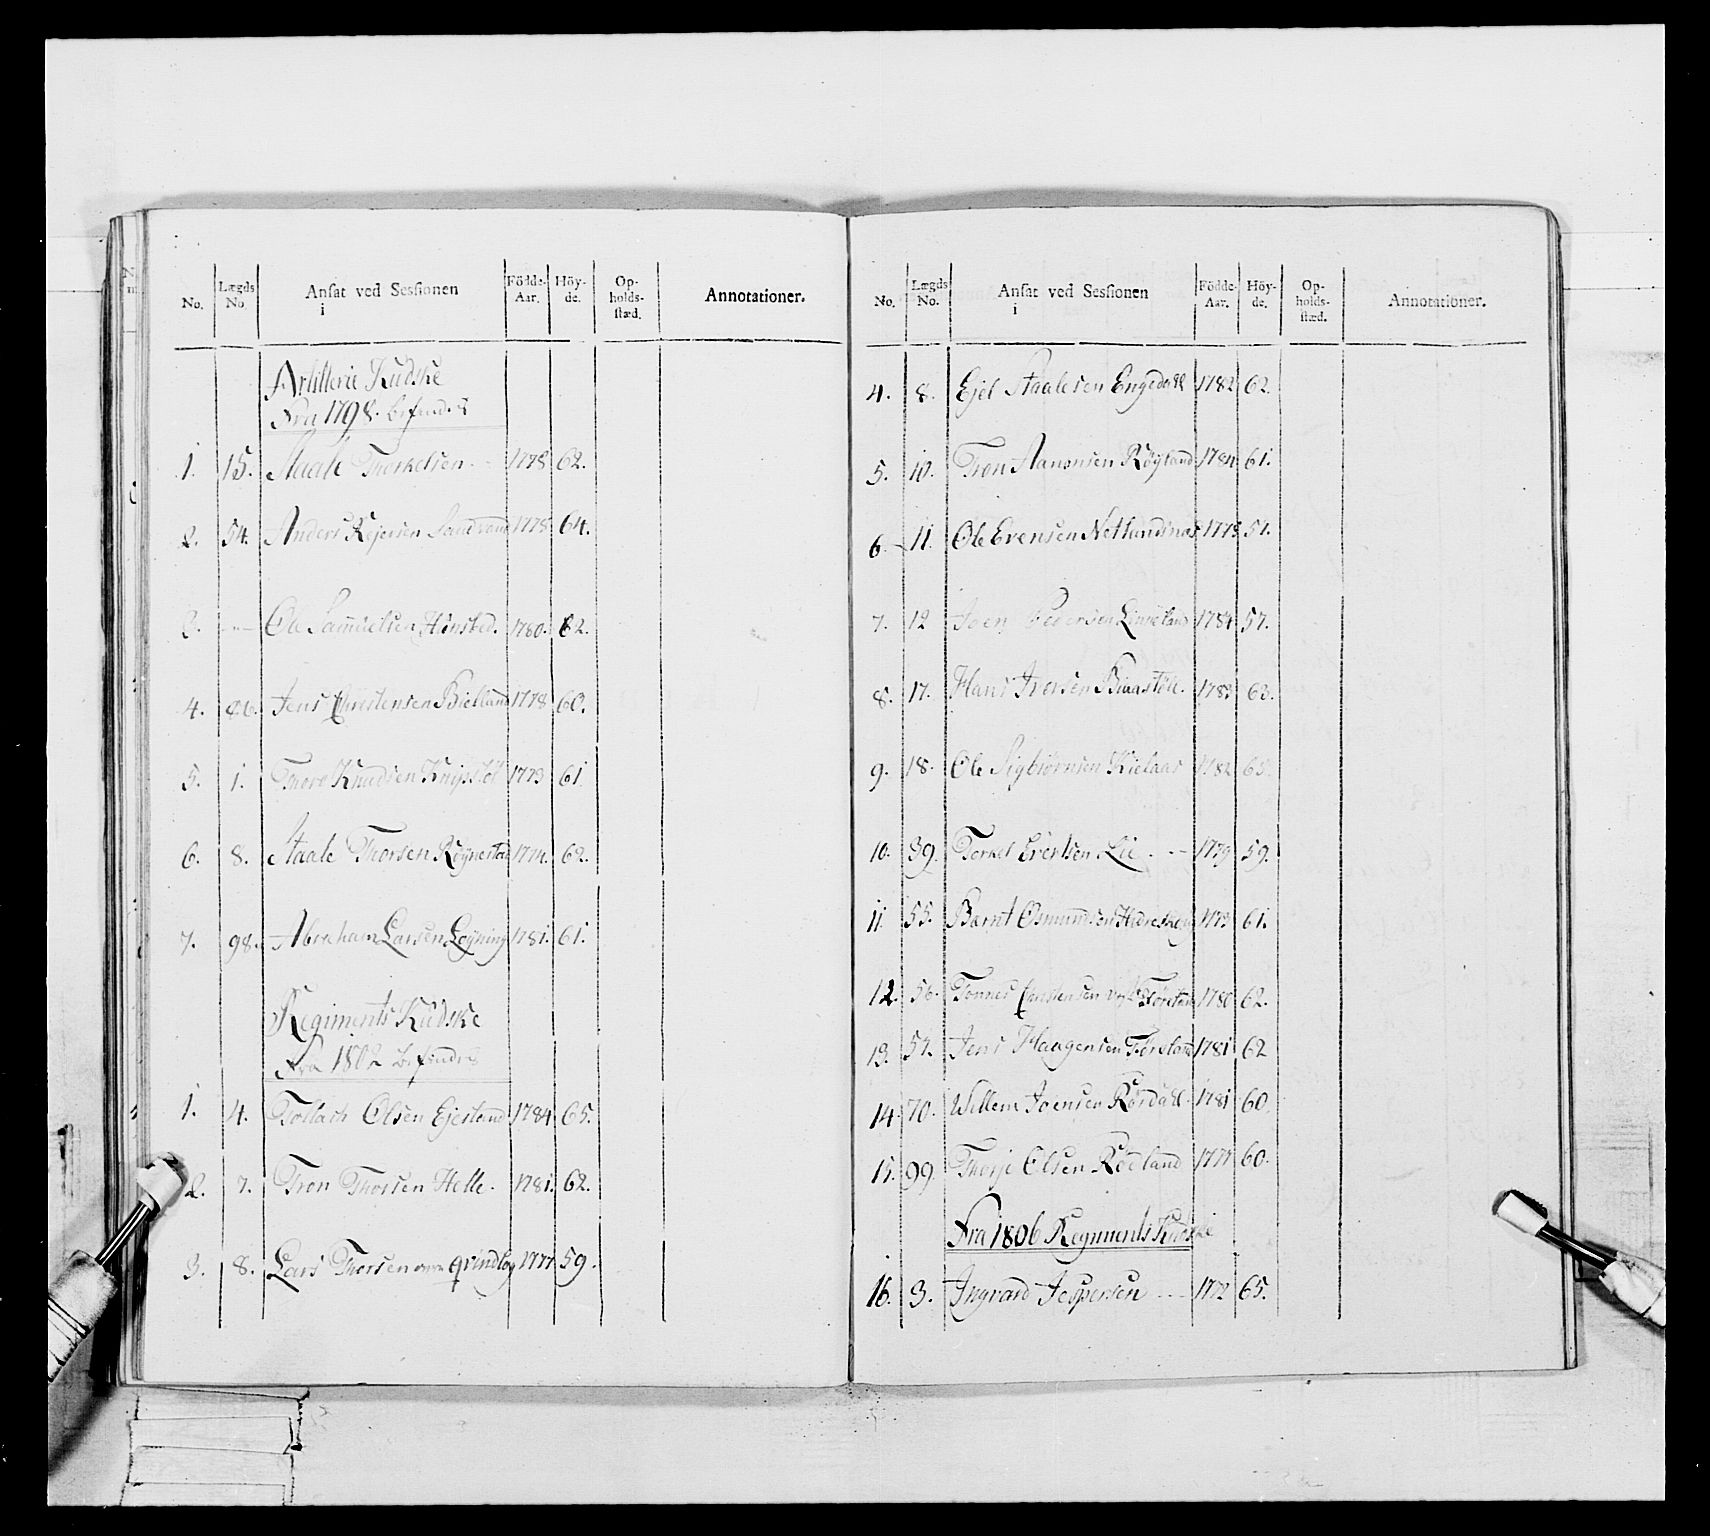 No. Lægds No. Ansat ved Sessionen i Födde-Aar. Höy-de. Op-holds-stæd. Annotationer.
Artillerie Kudske
Fra 1798. befindes
1. 15. Staale Thorkelsen 1778 62.
2. 54. Anders Rejersen Sandvand 1778 64.
3. -"- Ole Samuelsen Hunsbed. 1780. 62.
4. 86. Jens Christensen Bielland 1778 60.
5. 1. Thore Knudsen 1773 61
6. 8. Staale Thorsen Røynestad 1774. 62.
7. 98. Abraham Larsen Løyning 1781. 61.
Regiments Kudske
Fra 1802 befindes
1. 4. Tollach Olsen Ejestand 1784 65.
2. 7. Tron Thorsen Helle. 1781. 62.
3. 8. Lars Thorsen 1777 59.
No. Lægds No. Ansat ved Sessionen i Födde-Aar. Höy-de. Op-holds-stæd. Annotationer.
4. 8. Ejel Staalesen Engedahl 1782 62.
5. 10. Tron Aanonsen Røyland 1784 61.
6. 11. Ole Evensen Netlandsnæs 1778 57.
7. 12 Joen Pedersen 1784 57.
8. 17. Hans Iversen 1783 63.
9. 18. Ole Sigbiørnsen Kielaas 1782 65.
10. 39. Torkel Evertsen Lie. 1779 59.
11 55. Bærnt Osmundsen 1773 61.
12. 56. Tonnes Christensen 1780 62.
13. 57. Jens Haagensen Føreland 1781 62
14. 70. Willem Joensen Rørdahl. 1781 60.
15. 99. Thorje Olsen Rødland 1777 60.
Fra 1806 Regiments Kudske
16. 3. Ingvard Jespersen 1772 65.